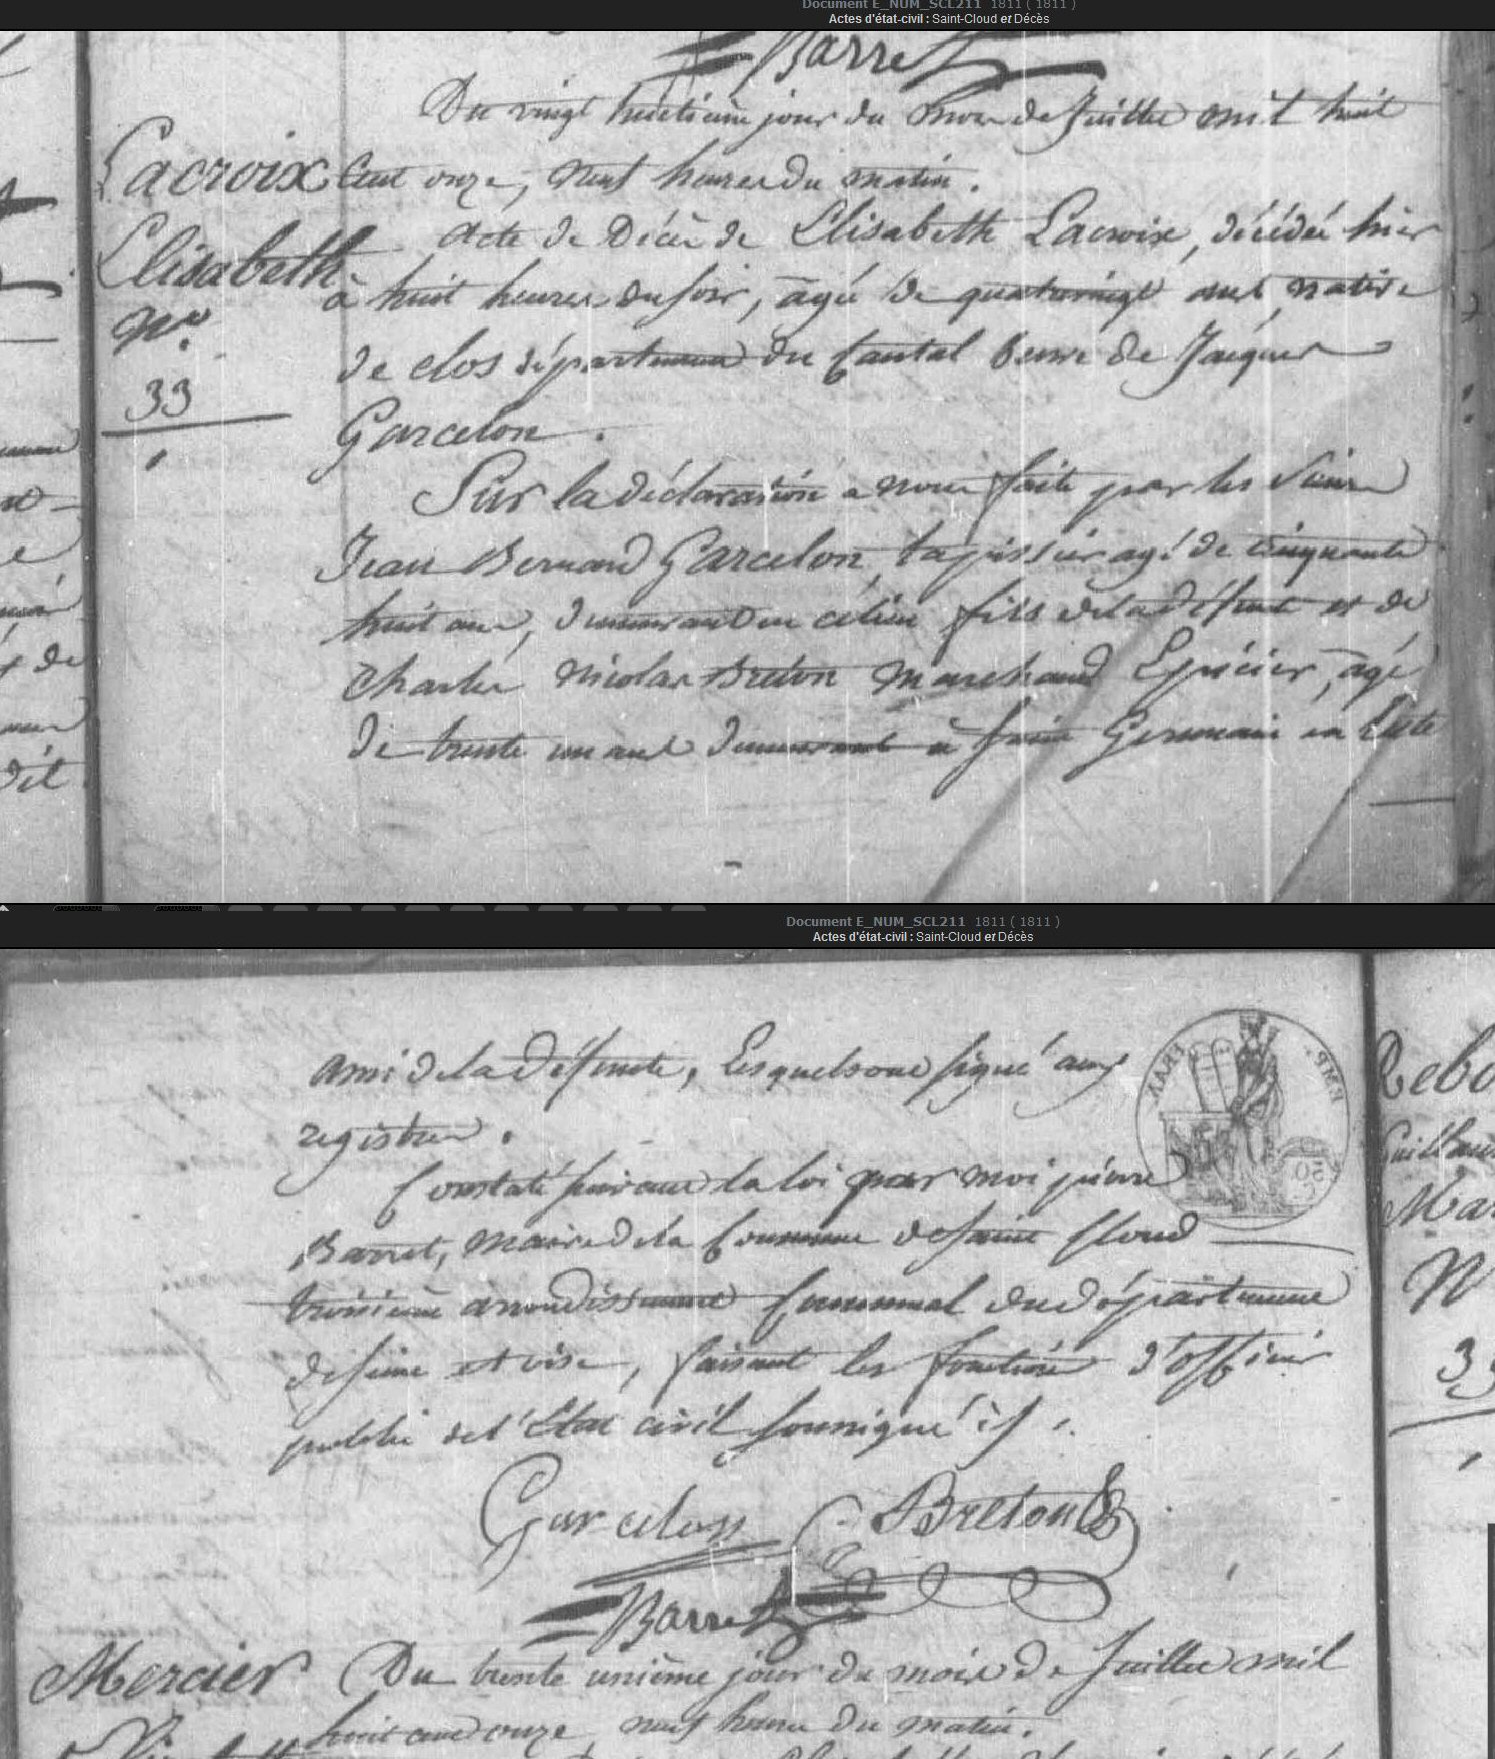 Document E_NUM_SCL211 1811 ( 1811 )
Actes d'état-civil : Saint-Cloud et Décès
Barret
Du vingt huitieme jour du mois de Juillet mil huit
Lacroix
Cent onze, neuf heures du matin.
Elisabeth
acte de Décès de Elisabeth Lacroix, décédée hier
à huit heures du soir, agée de quatrevingt ans, native
N°
33
de clos département du Cantal veuve de Jacques
Garcelon.
Sur la déclaration a nous faite par les Sieurs
Jean Bernard Garcelon, tapissier agé de cinquante
huit ans, demeurant en ce lieu fils de la défunte et de
Charles Nicolas Breton Marchand Epicier, agé
de trente un ans demeurant à Saint Germain en Laie
Document E_NUM_SCL211 1811 ( 1811 )
Actes d'état-civil : Saint-Cloud et Décès
ami de la défunte, Lesquels ont signé aux
registres.
Constaté suivant la loi par moi pierre
Barret, maire de la Commune de Saint Cloud
troisieme arrondissement Communal du département
de Seine et oise, faisant les fonctions d'officier
public de l'Etat civil soussigné
Garcelon C. Breton
Barret
Mercier
Du trente unième jour du mois de Juillet mil
huit cent onze, neuf heures du matin.